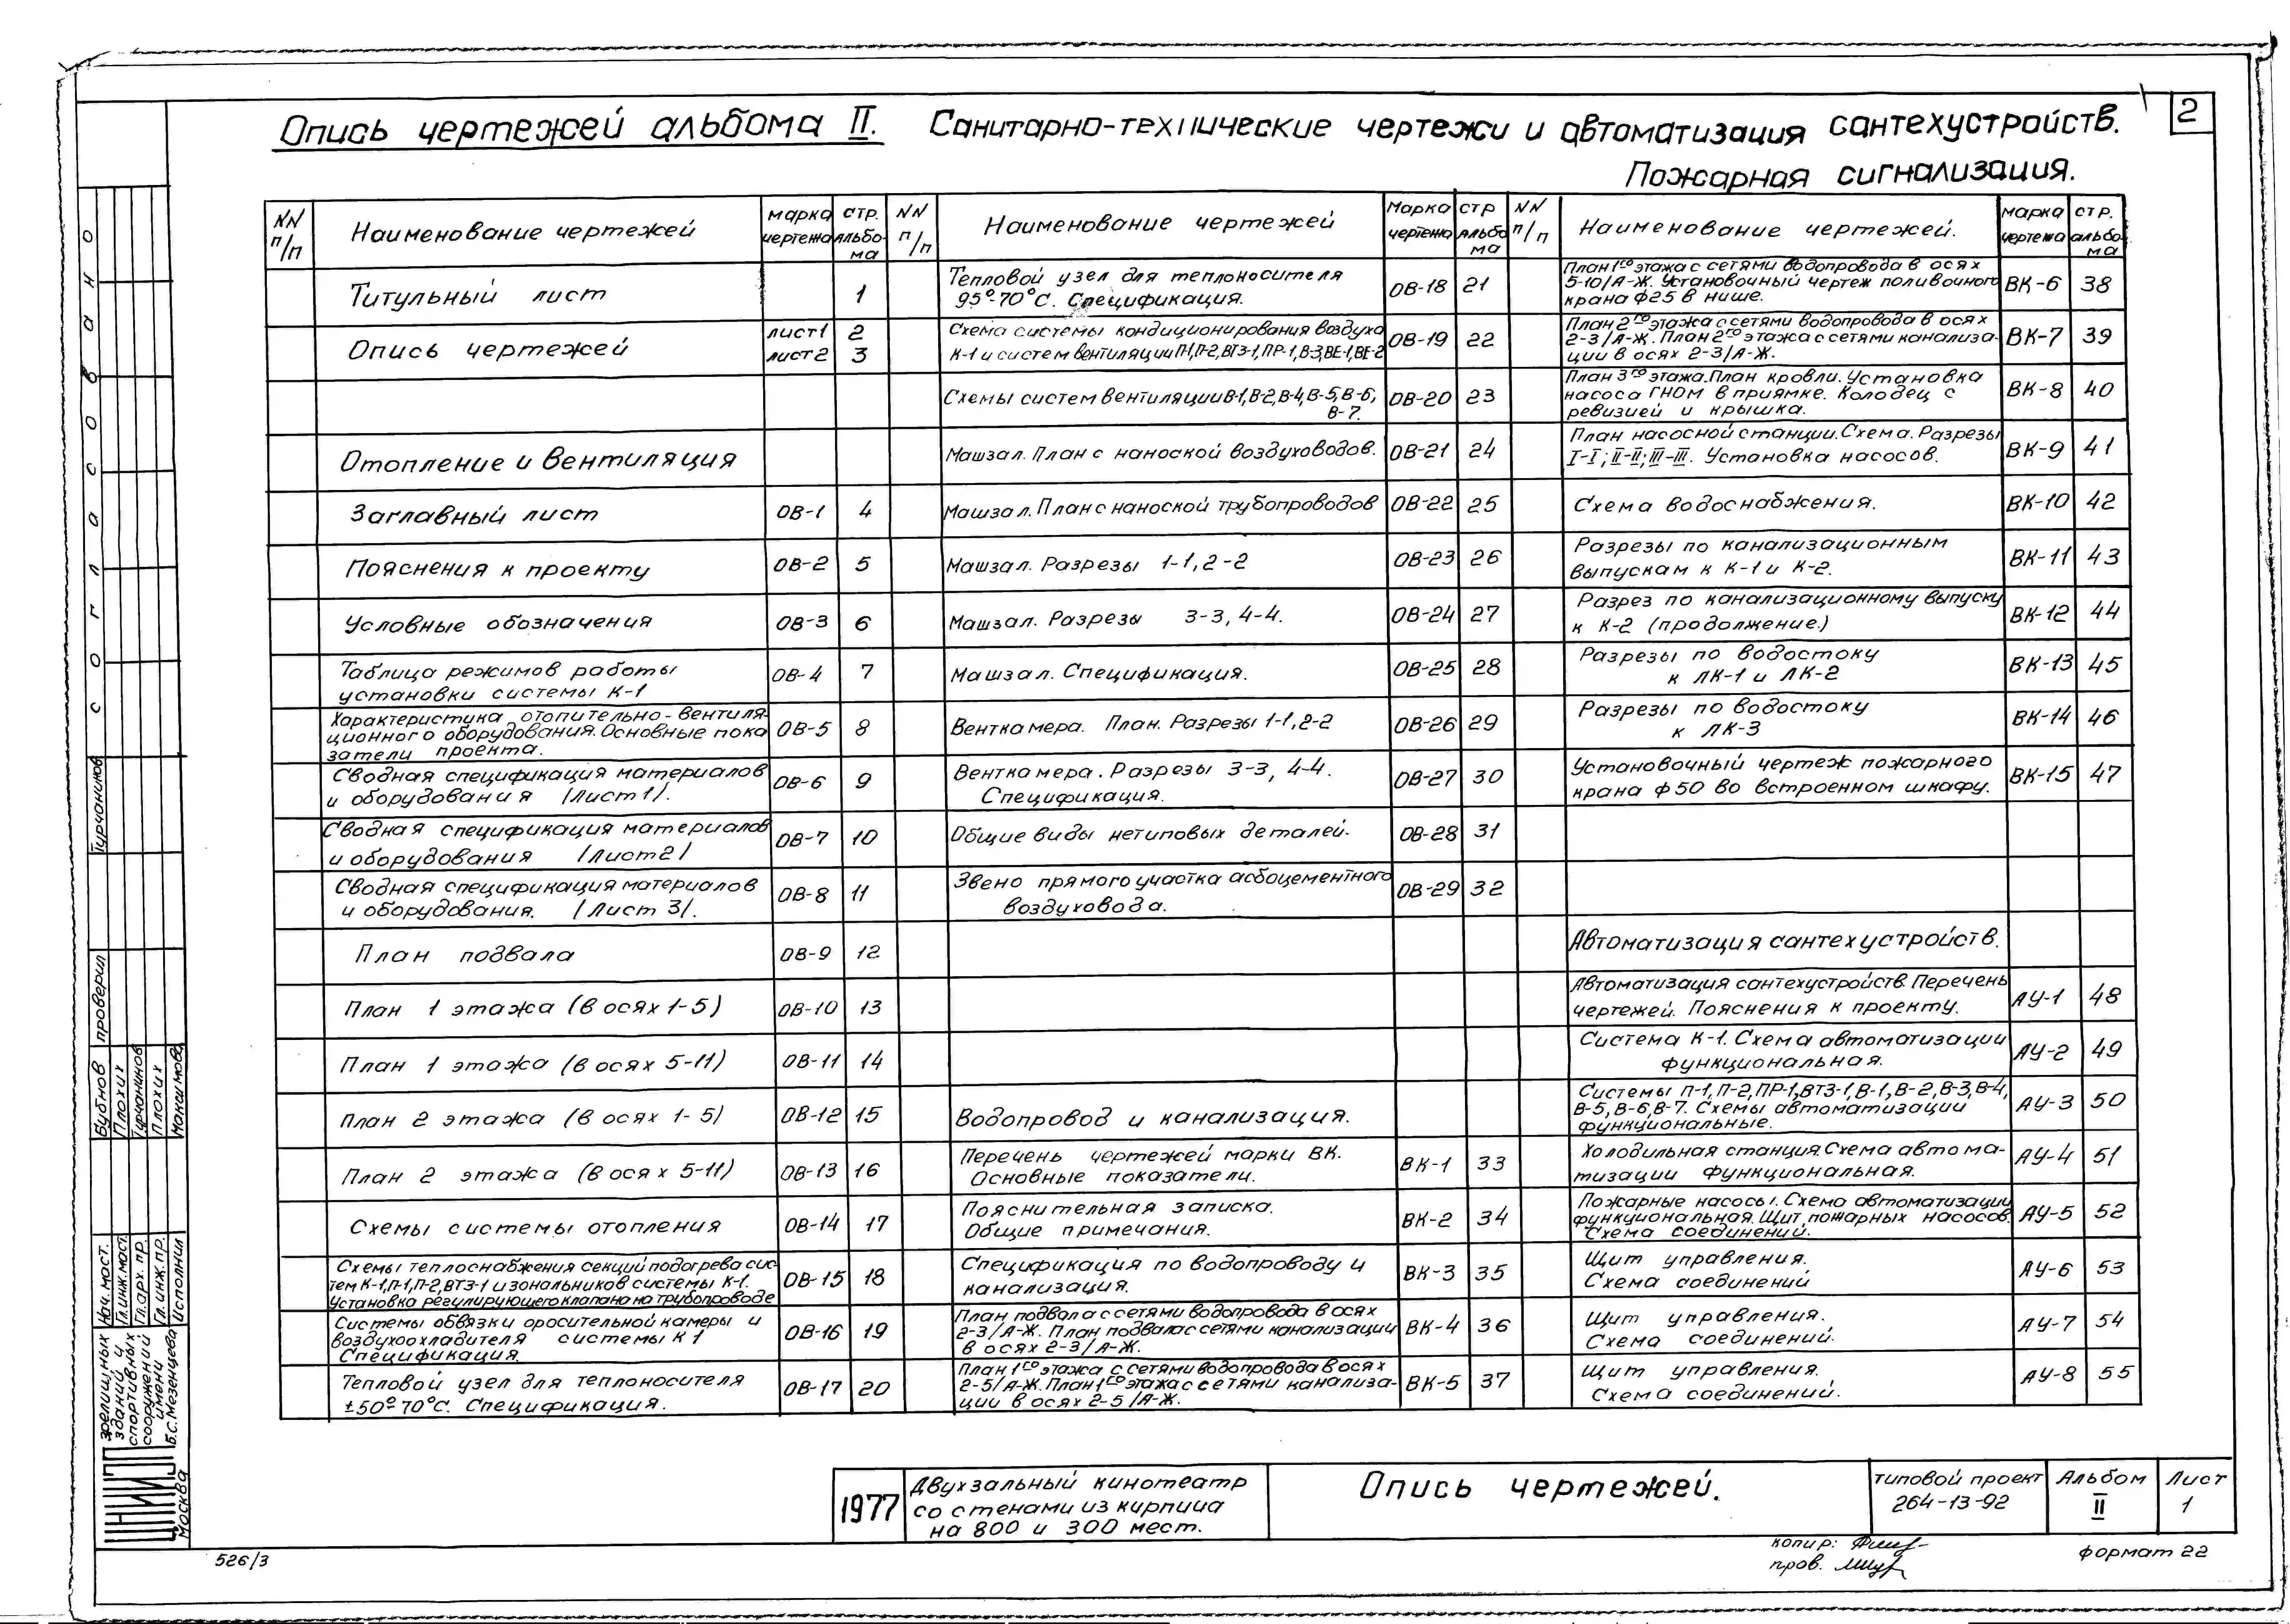 2
Опись чертежей альбома II. Санитарно-технические чертежи и автоматизация сантехустройств.
Пожарная сигнализация.
NN п/п
Наименование чертежей
марка чертежа
стр. альбо-ма
NN п/п
Наименование чертежей
Марка чертежа
стр альбо ма
NN п/п
Наименование чертежей.
марка чертежа
стр. альбо ма
Титульный лист 1
Опись чертежей
лист1 2
лист2 3
Отопление и вентиляция
Заглавный лист ОВ-1 4
Пояснения к проекту ОВ-2 5
Условные обозначения ОВ-3 6
Таблица режимов работы
установки системы К-1 ОВ-4 7
Характеристика отопительно-вентиля
ционного оборудования. Основные пока
затели проекта. ОВ-5 8
Сводная спецификация материалов
и оборудования /лист1/. ОВ-6 9
Сводная спецификация материалов
и оборудования /Лист2/ ОВ-7 10
Сводная спецификация материалов
и оборудования. /Лист 3/. ОВ-8 11
План подвала ОВ-9 12
План 1 этажа (в осях 1-5) ОВ-10 13
План 1 этажа (в осях 5-11) ОВ-11 14
План 2 этажа (в осях 1-5) ОВ-12 15
План 2 этажа (в осях 5-11) ОВ-13 16
Схемы системы отопления ОВ-14 17
Схемы теплоснабжения секций подогрева сис-
тем К-1,П-1,П-2,ВТЗ-1 и зональников системы К-1.
Установка регулирующего клапана на трубопроводе ОВ-15 18
Системы обвязки оросительной камеры и
воздухоохладителя системы К 1
Спецификация. ОВ-16 19
Тепловой узел для теплоносителя
±50°-70°С. Спецификация. ОВ-17 20
Тепловой узел для теплоносителя
95°-70°С. Спецификация. ОВ-18 21
Схема системы кондиционирования воздуха
К-1 и систем вентиляции П-1,П-2,ВТЗ-1,ПР-1,В-3,ВЕ-1,ВЕ-2 ОВ-19 22
Схемы систем вентиляции В-1,В-2,В-4,В-5,В-6,
В-7. ОВ-20 23
Машзал. План с наноской воздуховодов. ОВ-21 24
Машзал. План с наноской трубопроводов ОВ-22 25
Машзал. Разрезы 1-1, 2-2 ОВ-23 26
Машзал. Разрезы 3-3, 4-4. ОВ-24 27
Машзал. Спецификация. ОВ-25 28
Венткамера. План. Разрезы 1-1,2-2 ОВ-26 29
Венткамера. Разрезы 3-3, 4-4.
Спецификация. ОВ-27 30
Общие виды нетиповых деталей. ОВ-28 31
Звено прямого участка асбоцементного
воздуховода. ОВ-29 32
Водопровод и канализация.
Перечень чертежей марки ВК.
Основные показатели. ВК-1 33
Пояснительная записка.
Общие примечания. ВК-2 34
Спецификация по водопроводу и
канализация. ВК-3 35
План подвала с сетями водопровода в осях
2-3/А-Ж. План подвала с сетями канализации
в осях 2-3/А-Ж. ВК-4 36
План 1го этажа с сетями водопровода в осях
2-5/А-Ж. План 1го этажа с сетями канализа-
ции в осях 2-5/А-Ж. ВК-5 37
План 1го этажа с сетями водопровода в осях
5-10/А-Ж. Установочный чертеж поливочного
крана ф25 в нише. ВК-6 38
План 2го этажа с сетями водопровода в осях
2-3/А-Ж. План 2го этажа с сетями канализа-
ции в осях 2-3/А-Ж. ВК-7 39
План 3го этажа. План кровли. Установка
насоса ГНОМ в приямке. Колодец с
ревизией и крышка. ВК-8 40
План насосной станции. Схема. Разрезы
I-I; II-II; III-III. Установка насосов. ВК-9 41
Схема водоснабжения. ВК-10 42
Разрезы по канализационным
выпускам к К-1 и К-2. ВК-11 43
Разрез по канализационному выпуску
к К-2 (продолжение.) ВК-12 44
Разрезы по водостоку
к ЛК-1 и ЛК-2 ВК-13 45
Разрезы по водостоку
к ЛК-3 ВК-14 46
Установочный чертеж пожарного
крана ф50 во встроенном шкафу. ВК-15 47
Автоматизация сантехустройств.
Автоматизация сантехустройств. Перечень
чертежей. Пояснения к проекту. АУ-1 48
Система К-1. Схема автоматизации
функциональная. АУ-2 49
Системы П-1,П-2,ПР-1,ВТЗ-1,В-1,В-2,В-3,В-4,
В-5,В-6,В-7. Схемы автоматизации
функциональные. АУ-3 50
Холодильная станция. Схема автома-
тизации функциональная. АУ-4 51
Пожарные насосы. Схема автоматизации
функциональная. Щит пожарных насосов.
Схема соединений. АУ-5 52
Щит управления.
Схема соединений АУ-6 53
Щит управления.
Схема соединений. АУ-7 54
Щит управления.
Схема соединений. АУ-8 55
Согласовано
Турчанинов
Бубнов проверил
Плохих
Турчанинов
Плохих
Максимова
Нач. маст.
Гл.инж.маст.
Гл.арх. пр.
Гл. инж.пр.
Исполнил
ЦНИИЭП
зрелищных
зданий и
спортивных
сооружений
имени
Б.С.Мезенцева
Москва
1977
Двухзальный кинотеатр
со стенами из кирпича
на 800 и 300 мест.
Опись чертежей.
типовой проект
264-13-92
Альбом
II
Лист
1
526/3
копир:
пров.
формат 22